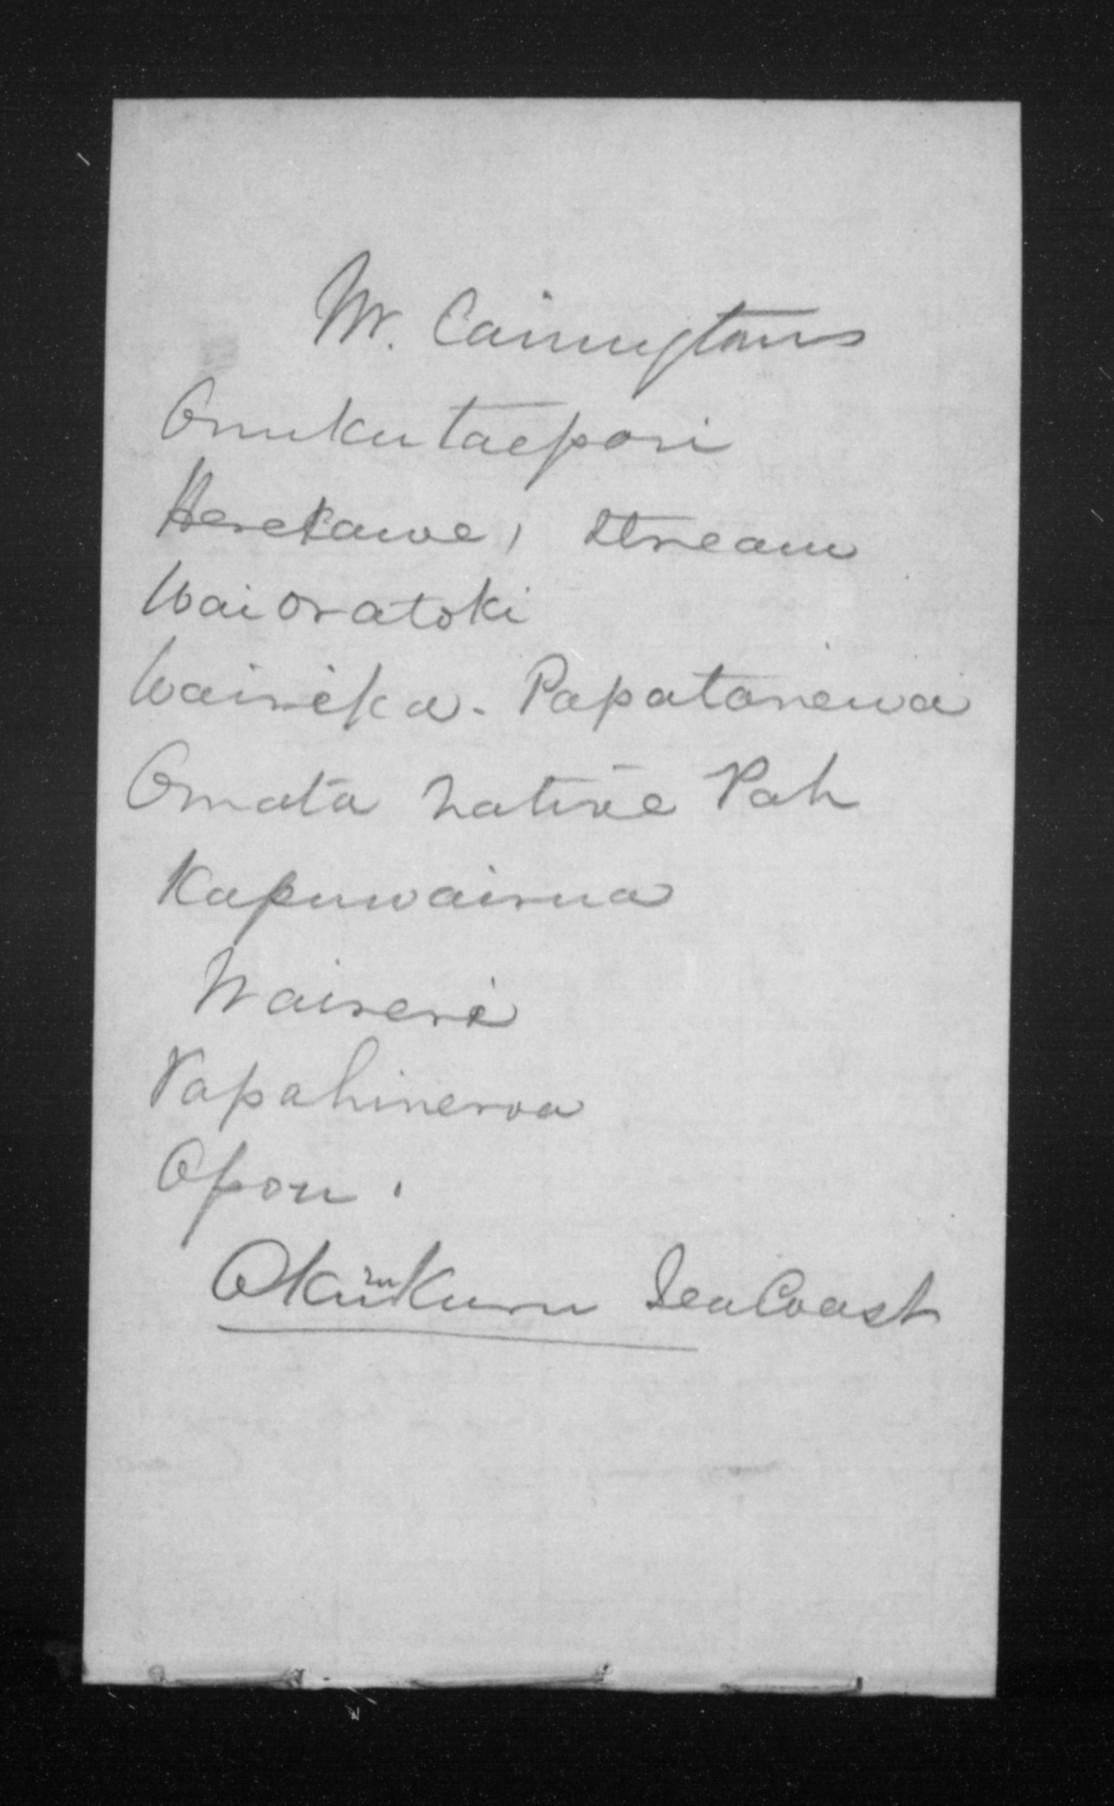 Mr. Carringtons
Omukutaepori
Herekawe, Stream
Waioratoki
Waireka. Papatarewa
Omata native Pah
Kapuwairua
Waireri
Papahineroa
Opou.
Okurukuru Sea Coast